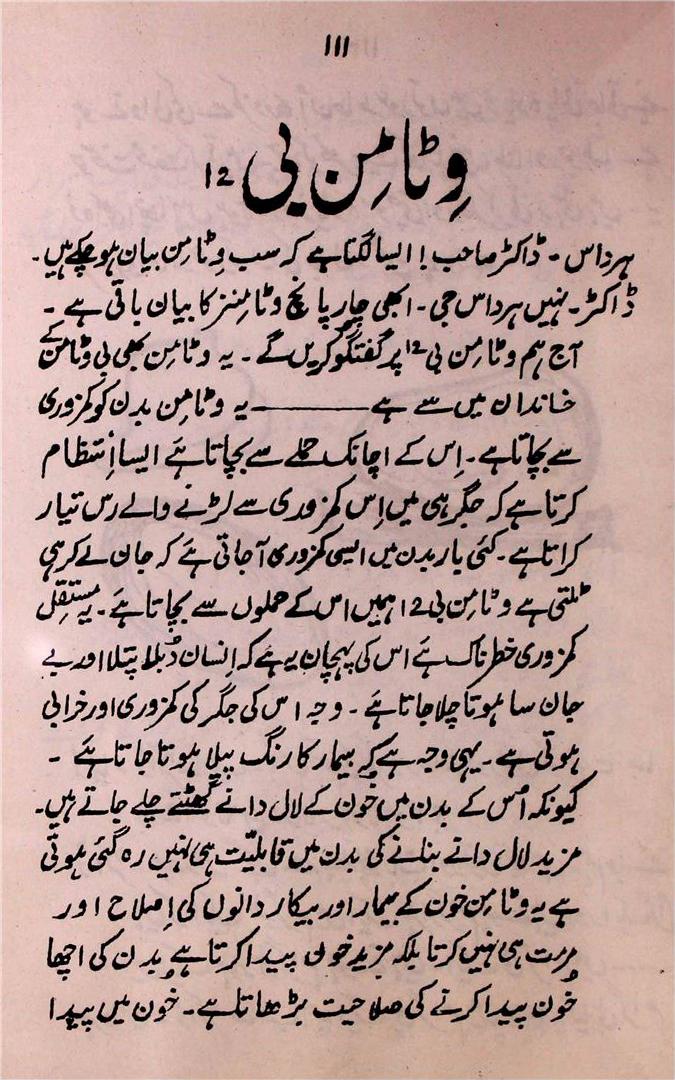 111
وِٹامِن بی 12
ہرداس ۔ ڈاکٹر صاحب! ایسا لگتا ہے کہ سب وِٹامن بیان ہو چکے ہیں۔
ڈاکٹر۔ نہیں ہرداس جی ۔ ابھی چار پانچ وٹامنز کا بیان باقی ہے ۔
آج ہم وٹامن بی 12 پر گفتگو کریں گے ۔ یہ وٹامن بھی بی وٹامن کے
خاندان میں سے ہے ——— یہ وٹامن بدن کو کمزوری
سے بچاتا ہے ۔ اِس کے اچانک حملے سے بچاتا ہے ایسا اِنتظام
کرتا ہے کہ جگر ہی میں اِس کمزوری سے لڑنے والے رس تیار
کراتا ہے ۔ کئی بار بدن میں ایسی کمزوری آجاتی ہے کہ جان لے کر ہی
ٹلتی ہے وٹامن بی 12 ہمیں اس کے حملوں سے بچاتا ہے ۔ یہ مستقِل
کمزوری خطرناک ہے اس کی پہچان یہ ہے کہ اِنسان دُبلا پتلا اور بے
جان سا ہوتا چلا جاتا ہے ۔ وجہ اس کی جگر کی کمزوری اور خرابی
ہوتی ہے ۔ یہی وجہ ہے کہ بیمار کا رنگ پیلا ہوتا جاتا ہے ۔
کیونکہ اُس کے بدن میں خون کے لال دانے گھٹتے چلے جاتے ہیں۔
مزید لال دانے بنانے کی بدن میں قابلیّت ہی نہیں رہ گئی ہوتی
ہے یہ وٹامن خون کے بیمار اور بیکار دانوں کی اِصلاح اور
مرمت ہی نہیں کرتا بلکہ مزید خون پیدا کرتا ہے بدن کی اچھا
خون پیدا کرنے کی صلاحیت بڑھاتا ہے ۔ خون میں پیدا